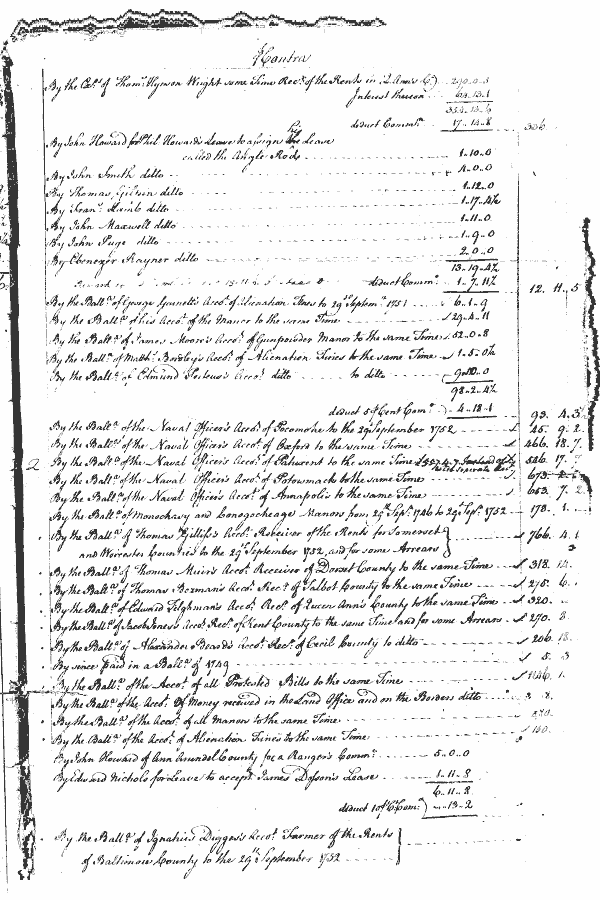 Contra
By the Exrs. of Thoms. Hynson Wright some Time Recr. of the Rents in Q. Ann's Cty 290..0..5
Interest thereon 64..13..1
354..13..6
deduct Commn. 17..14..8 336
By John Howard for Phil Howard's Leave to assign his Lease
called the Angle Rods 1..10..0
By John Smith ditto 4..0..0
By Thomas Gibson ditto 1..12..0
By Frans. ditto 1..17..4½
By John Maxwell ditto 1..11..0
By John Page ditto 1..9..0
By Ebenezer Rayner ditto 2..0..0
13..19..4½
deduct Commn. 1..7..11½ 12..11..5
By the Balle. of George Accot. of Alienation Fines to 29th. Septemr. 1751 6..1..9
By the Balle. of his Accot. of the Manor to the same Time 29..4..11
By the Balle. of James Moore's Accot. of Gunpowder Manor to the same Time 52..0..8
By the Balle. of Accot. of Alienation Fines to the same Time 1..5..0½
By the Balle. of Edmund Accot. ditto to ditto 9..10..0
98..2..4½
deduct 5 ⅌ Cent Comn. 4..18..1 93..4..3
By the Balle. of the Naval Officer's Accot. of Pocomoke to the 29 September 1752 45..9..2
By the Balle. of the Naval Officer's Accot. of Oxford to the same Time 466..18..7
By the Balle. of the Naval Officer's Accot. of Patuxent to the same Time 526..17..7
By the Balle. of the Naval Officer's Accot. of Potowmack to the same Time 673
By the Balle. of the Naval Officer's Accot. of Annapolis to the same Time 653..7..2
By the Balle. of Monochasy and Conogocheage Manors from 29th. Sepr. 1746 to 29 Sepr. 1752 178..1
By the Balle. of Thomas Gilliss's Accot. Receiver of the Rents for Somerset
and Worcester Counties to the 29th September 1752, and for some Arrears 766..4..1
By the Balle. of Thomas Muir's Accot. Receiver of Dorset County to the same Time 318..14
By the Balle. of Thomas Bozman's Accot. Recr. of Talbot County to the same Time 275..6
By the Balle. of Edward Tilghman's Accot. Recr. of Queen Ann's County to the same Time 320
By the Balle. of Accot. Recr. of Kent County to the same Time and for some Arrears 270..8
By the Balle. of Alexander Beard's Accot. Recr. of Cecil County to ditto 206..18
By since paid in a Balle. of 1749 5..3
By the Balle. of the Accot. of all Protested Bills to the same Time 1146..1
By the Balle. of the Accot. of Money received in the Land Office and on the Borders ditto
By the Balle. of the Accot. of all Manors to the same Time
By the Balle. of the Accot. of Alienation Fines to the same Time
By John Howard of Ann Arundel County for a Ranger's Commn. 5..0..0
By Edward Nichols for Leave to accept James Lease 1..11..8
6..11..8
deduct 10 ⅌ Ct. Com. ..13..2
By the Balle. of Ignatius Digges's Accot. Farmer of the Rents
of Baltimore County to the 29th. September 1752